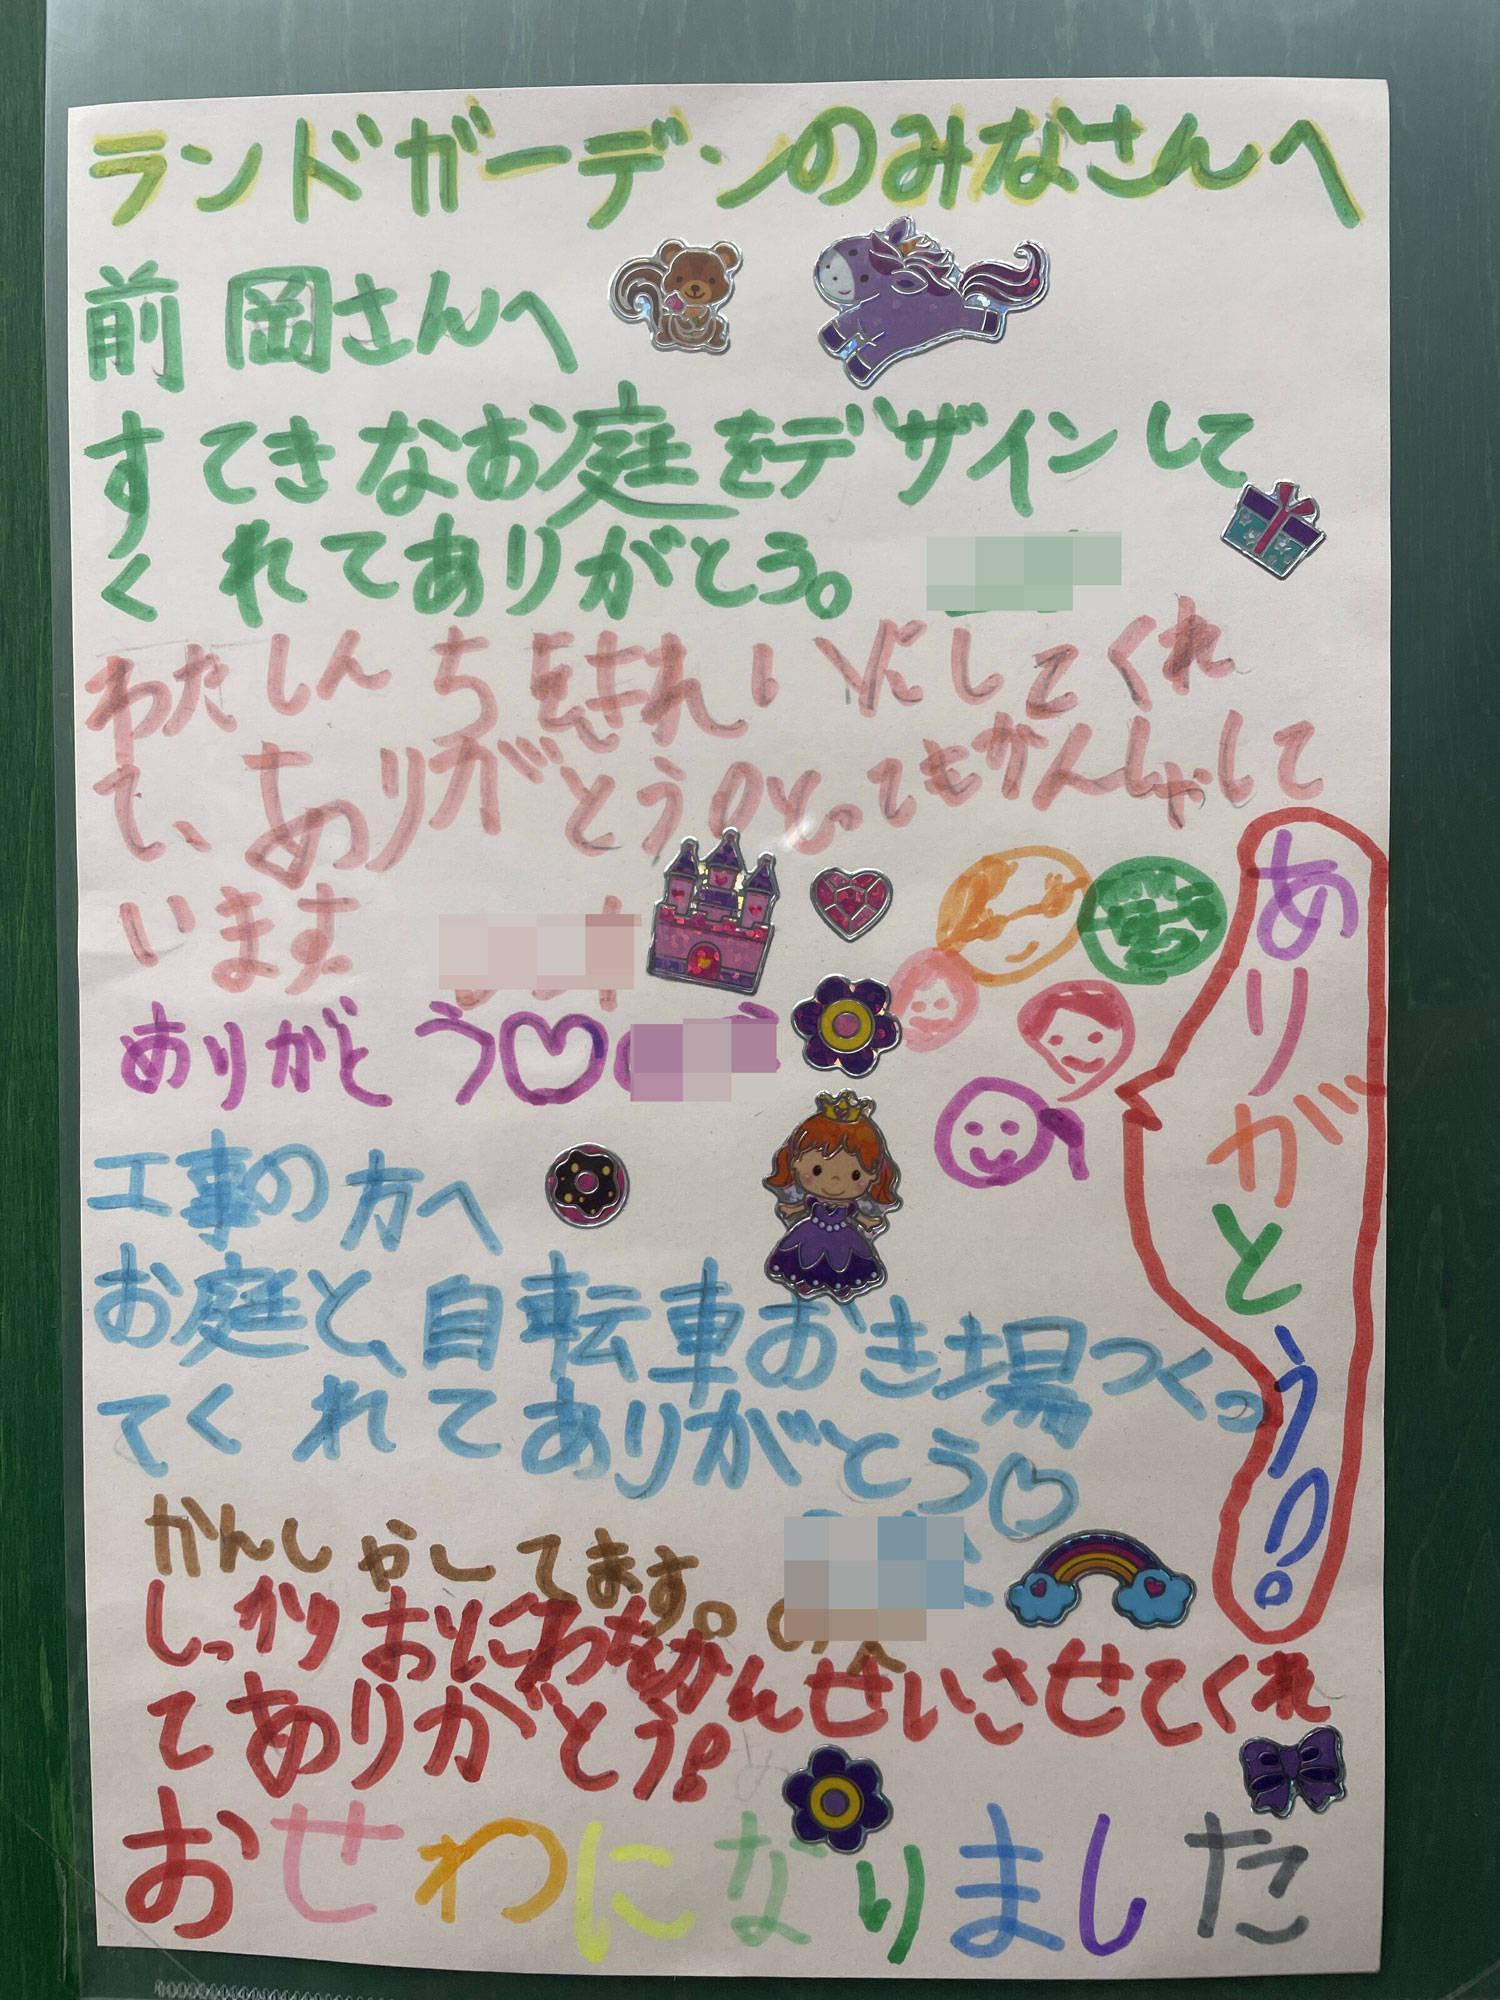 ランドガーデンのみなさんへ
前岡さんへ
すてきなお庭をデザインして
くれてありがとう。
わたしんちをきれいにしてくれ
て、ありがとう!とってもかんしゃして
います
ありがとう♡
工事の方へ
お庭と、自転車おき場つくっ
てくれてありがとう♡
かんしゃしてます。
しっかりおにわをかんせいさせてくれ
てありがとう!
おせわになりました
ありがとう!!